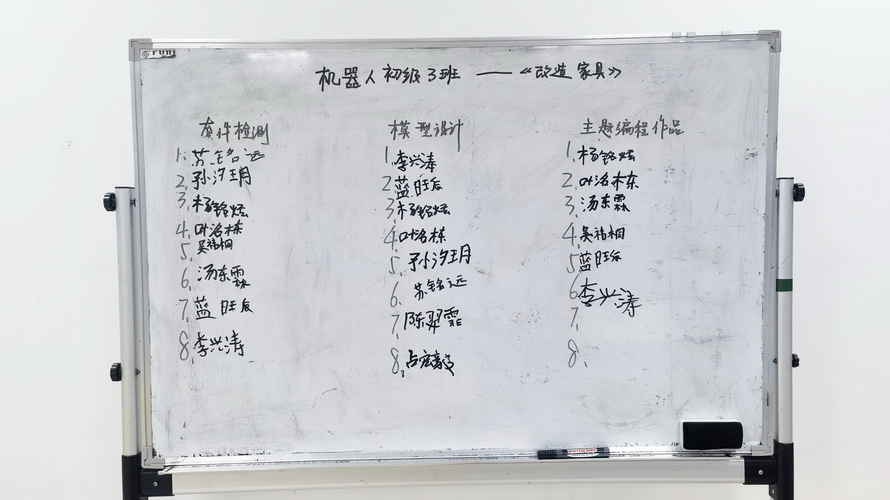 机器人初级3班 ——《改造家具》
套件检测
1. 苏铭远
2. 孙汐玥
3. 杨铭炫
4. 叶洺栋
5. 吴祐桐
6. 汤东霖
7. 蓝旺辰
8. 李兴涛
模型设计
1. 李兴涛
2 蓝旺辰
3 杨铭炫
4 叶洺栋
5. 孙汐玥
6. 苏铭远
7. 陈翠霏
8. 占宏毅
主题编程作品
1. 杨铭炫
2. 叶洺栋
3. 汤东霖
4. 吴祐桐
5 蓝旺辰
6 李兴涛
7.
8.